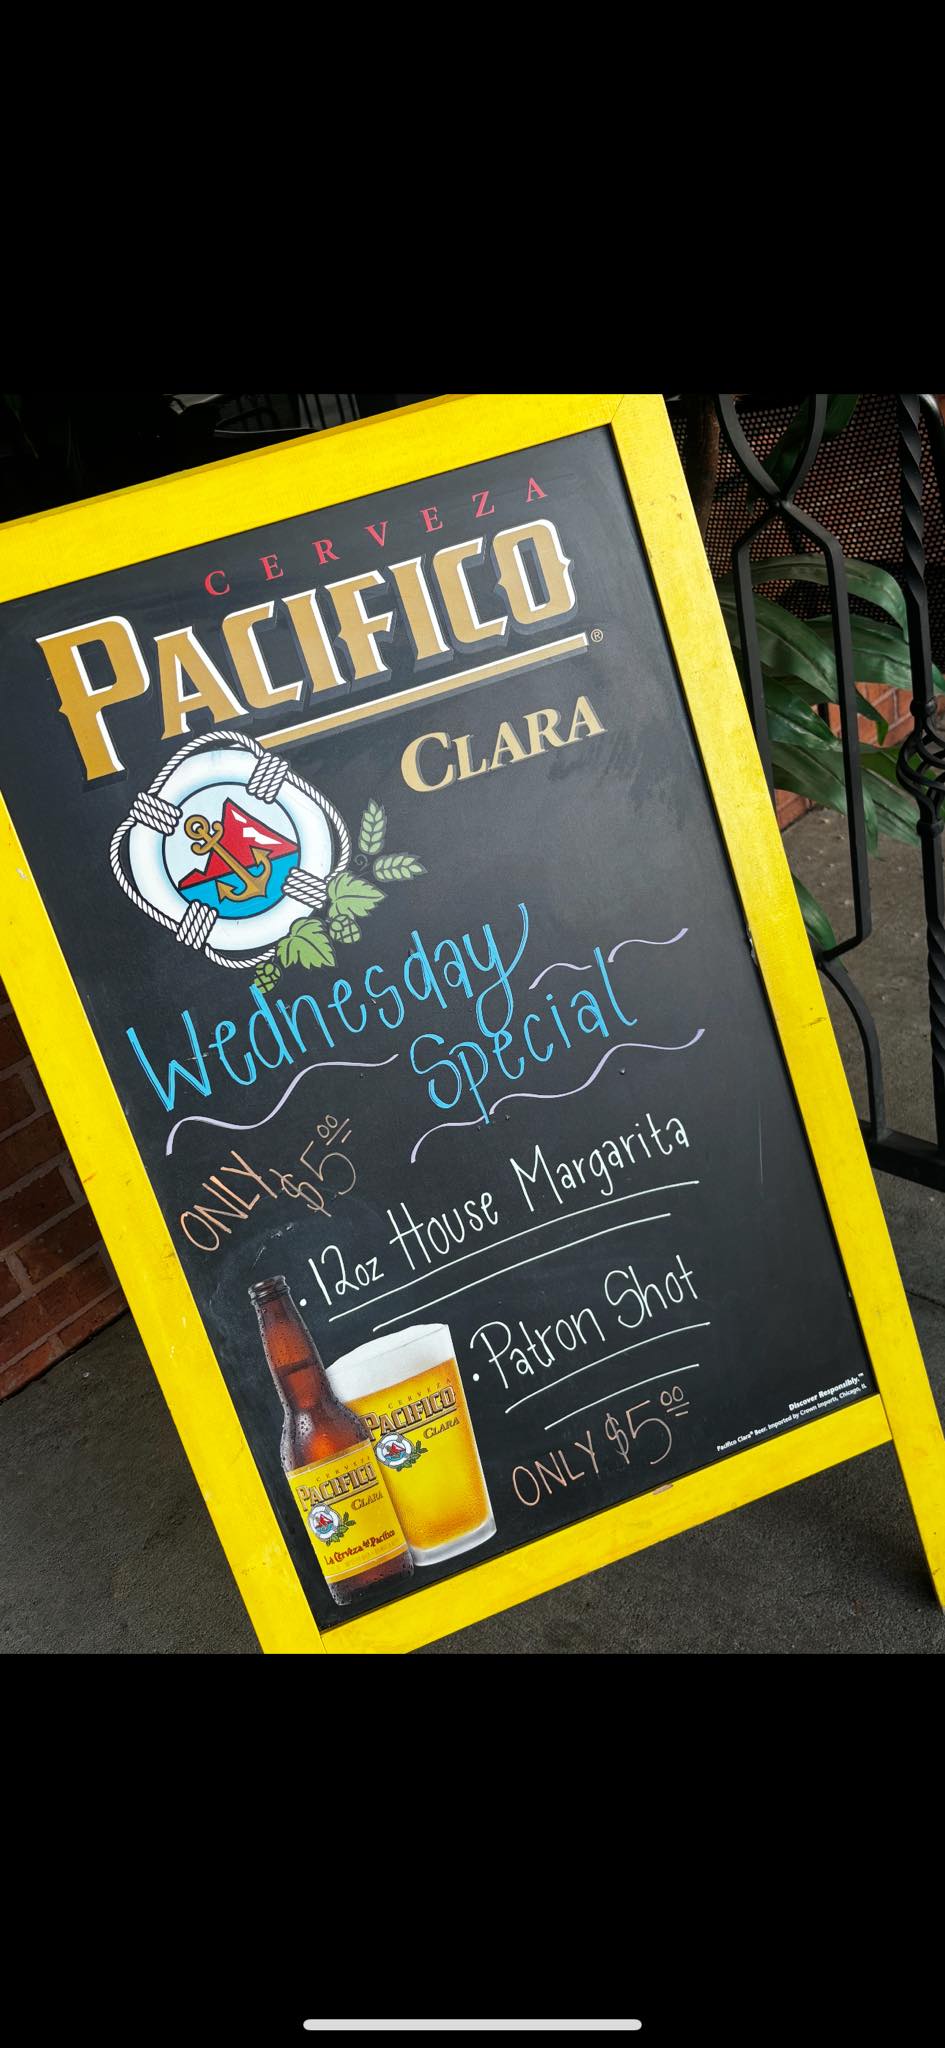 CERVEZA
PACIFICO®
CLARA
Wednesday
Special
ONLY $5.00
· 12oz House Margarita
· Patron Shot
ONLY $5.00
CERVEZA
PACIFICO
CLARA
CERVEZA
PACIFICO
CLARA
La Cerveza del Pacífico
Discover Responsibly.™
Pacifico Clara® Beer. Imported by Crown Imports, Chicago, IL